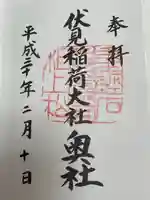 奉拝
伏見稲荷大社奥社
平成三十年二月十日